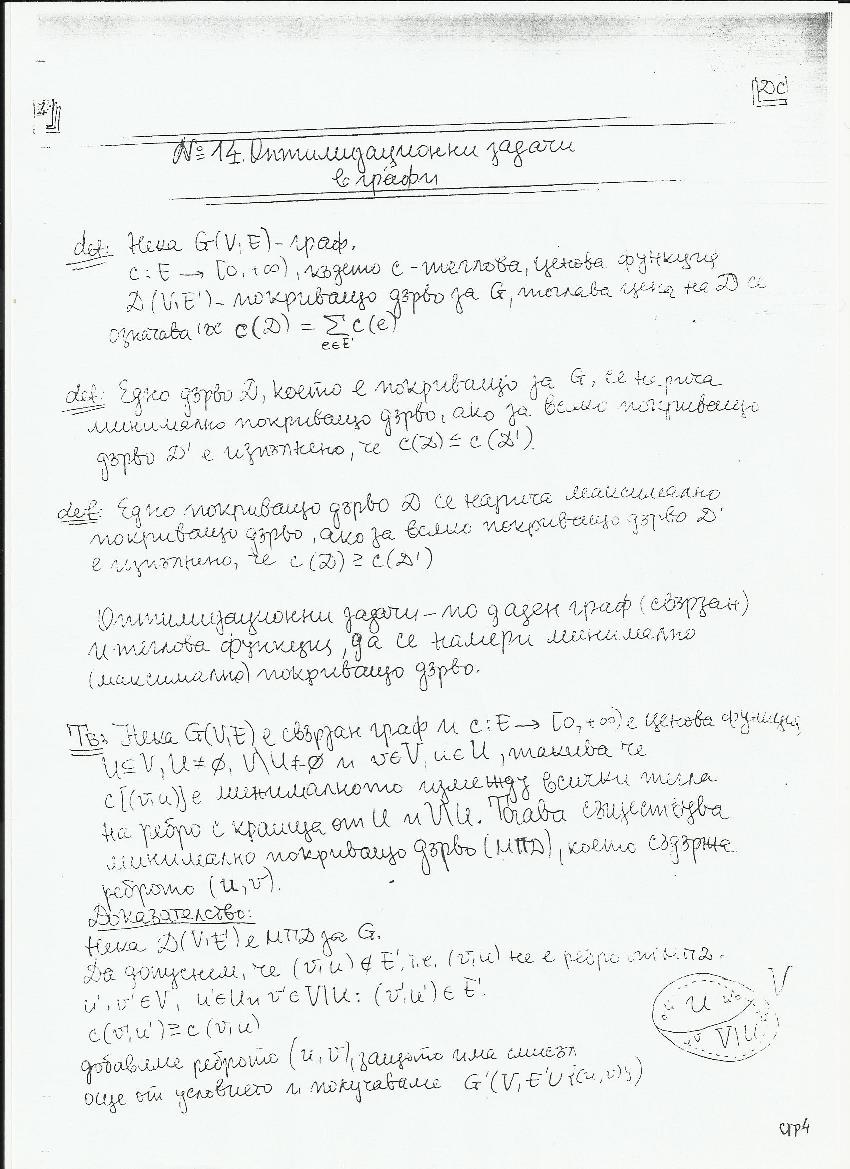 ДС
№ 14. Оптимизационни задачи
в графи
def: Нека G(V,E) - граф.
c: E → [0, +∞), където c - теглова, ценова функция
D(V,E') - покриващо дърво за G, тоглава цена на D се
означава с c(D) = Σ c(e)
e∈E'
def: Едно дърво D, което е покриващо за G, се нарича
минимално покриващо дърво, ако за всяко покриващо
дърво D' е изпълнено, че c(D) ≤ c(D').
def: Едно покриващо дърво D се нарича максимално
покриващо дърво, ако за всяко покриващо дърво D'
е изпълнено, че c(D) ≥ c(D')
Оптимизационни задачи - по даден граф (свързан)
и теглова функция, да се намери минимално
(максимално) покриващо дърво.
Тв: Нека G(V,E) е свързан граф и c: E → [0, +∞) е ценова функция
U⊆V, U≠∅, V\U≠∅ и v∈V, u∈U, такива че
c[(v,u)] е минималното измежду всички тегла
на ребро с краища от U и V\U. Тогава съществува
минимално покриващо дърво (МПД), което съдържа
реброто (u,v).
Доказателство:
Нека D(V,E') е МПД за G.
Да допуснем, че (v,u) ∉ E', т.е. (v,u) не е ребро от МПД.
u', v' ∈ V, u' ∈ U и v' ∈ V\U : (v',u') ∈ E'.
c(v',u') ≥ c(v,u)
добавяме реброто (u,v), защото има смисъл
още от условието и получаваме G'(V, E' ∪ {(u,v)})
U
V
V\U
стр 4